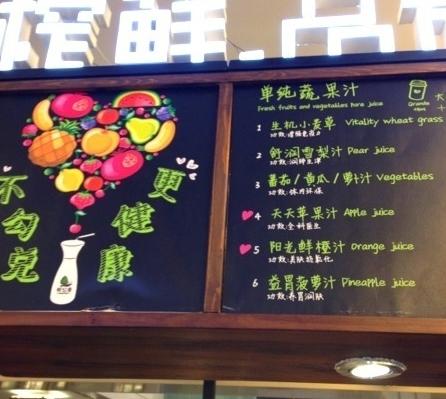 榨鲜.品
不勾兑
更健康
单纯蔬果汁
Fresh fruits and vegetables hare juice
Grande
1 生机小麦草 Vitality wheat grass
功效:增强免疫力
2 舒润雪梨汁 Pear juice
功效:润肺生津
3 番茄/黄瓜/萝汁 Vegetables
功效:体内环保
4 天天苹果汁 Apple juice
功效:全科医生
5 阳光鲜橙汁 Orange juice
功效:美肤抗氧化
6 益胃菠萝汁 Pineapple juice
功效:养胃润肤